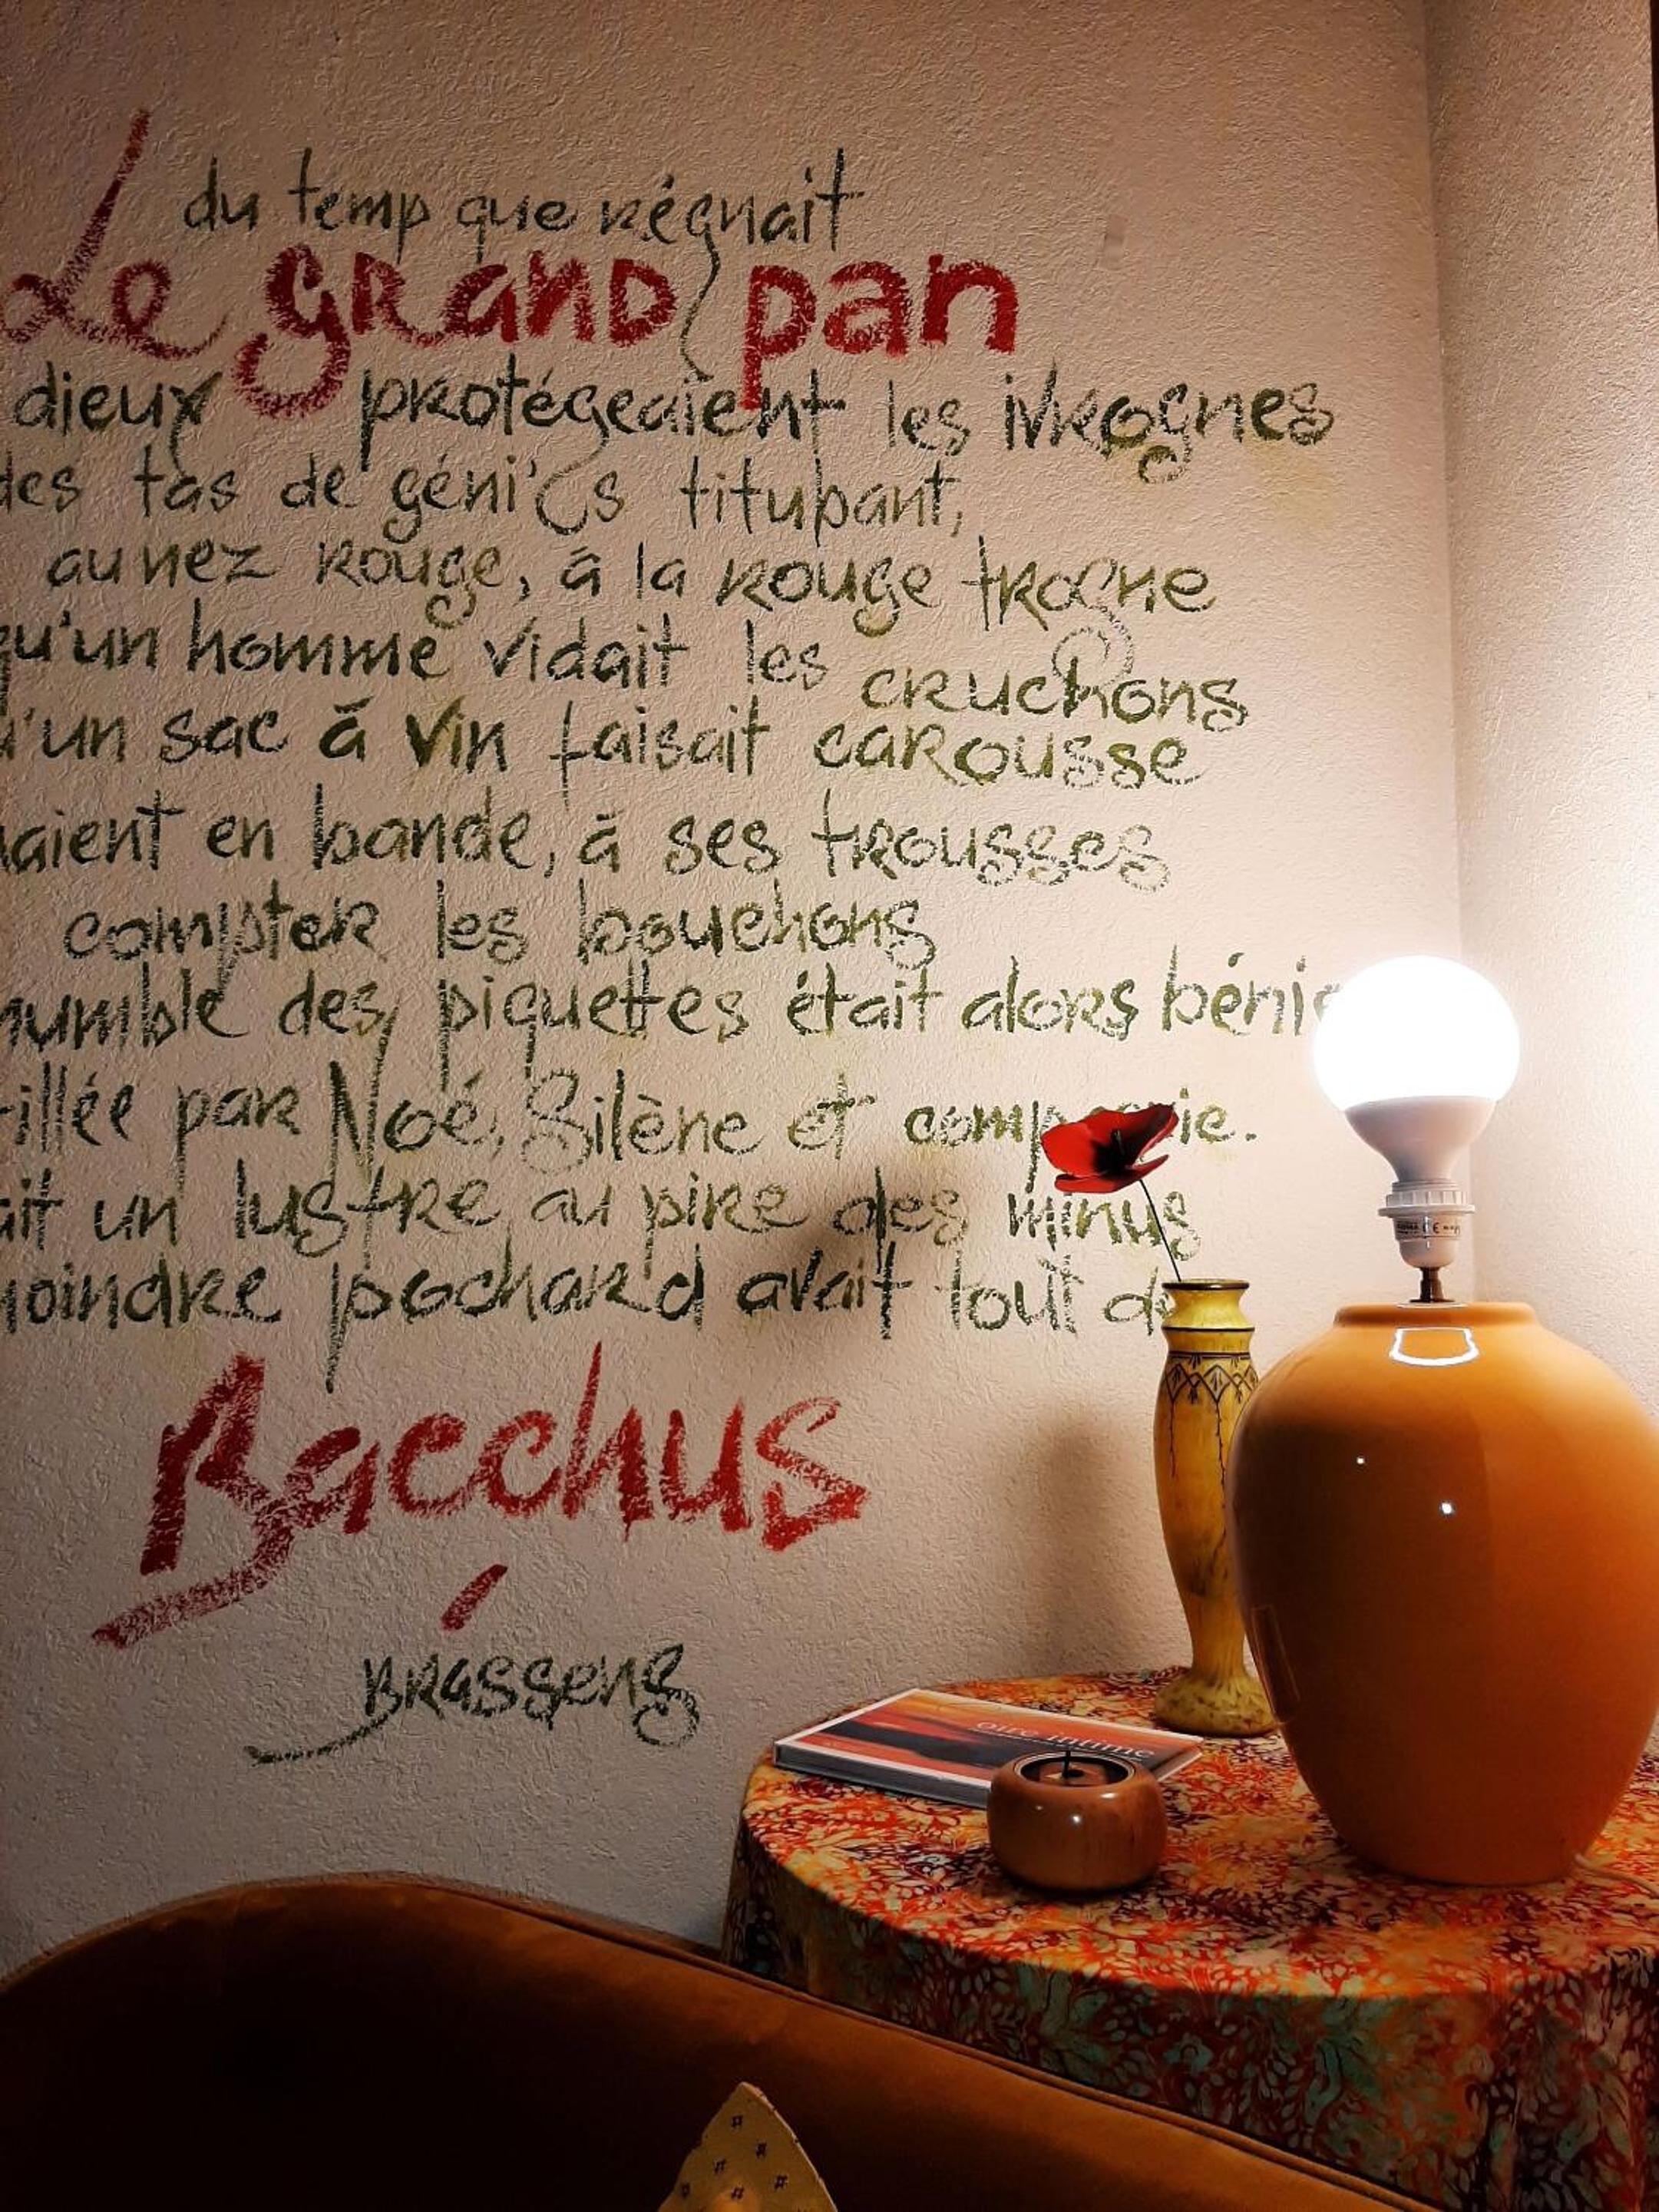 du temp que régnait
Le grand pan
dieux protégeaient les ivrognes
des tas de génies titubant,
au nez rouge, à la rouge trogne
qu'un homme vidait les cruchons
qu'un sac à vin faisait carousse
aient en bande, à ses trousses
compter les bouchons
humble des piquettes était alors bénie
tillée par Noé, Silène et compagnie.
ait un lustre au pire des minus
moindre pochard avait tout de
Bacchus
Brassens
oire intime